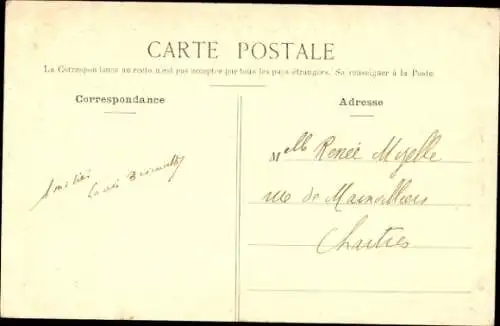 CARTE POSTALE
La Correspondance au recto n'est pas acceptée par tous les pays étrangers. Se renseigner à la Poste
Correspondance
Adresse
Mlle Renée
rue de Mainvilliers
Chartres
Amitiés